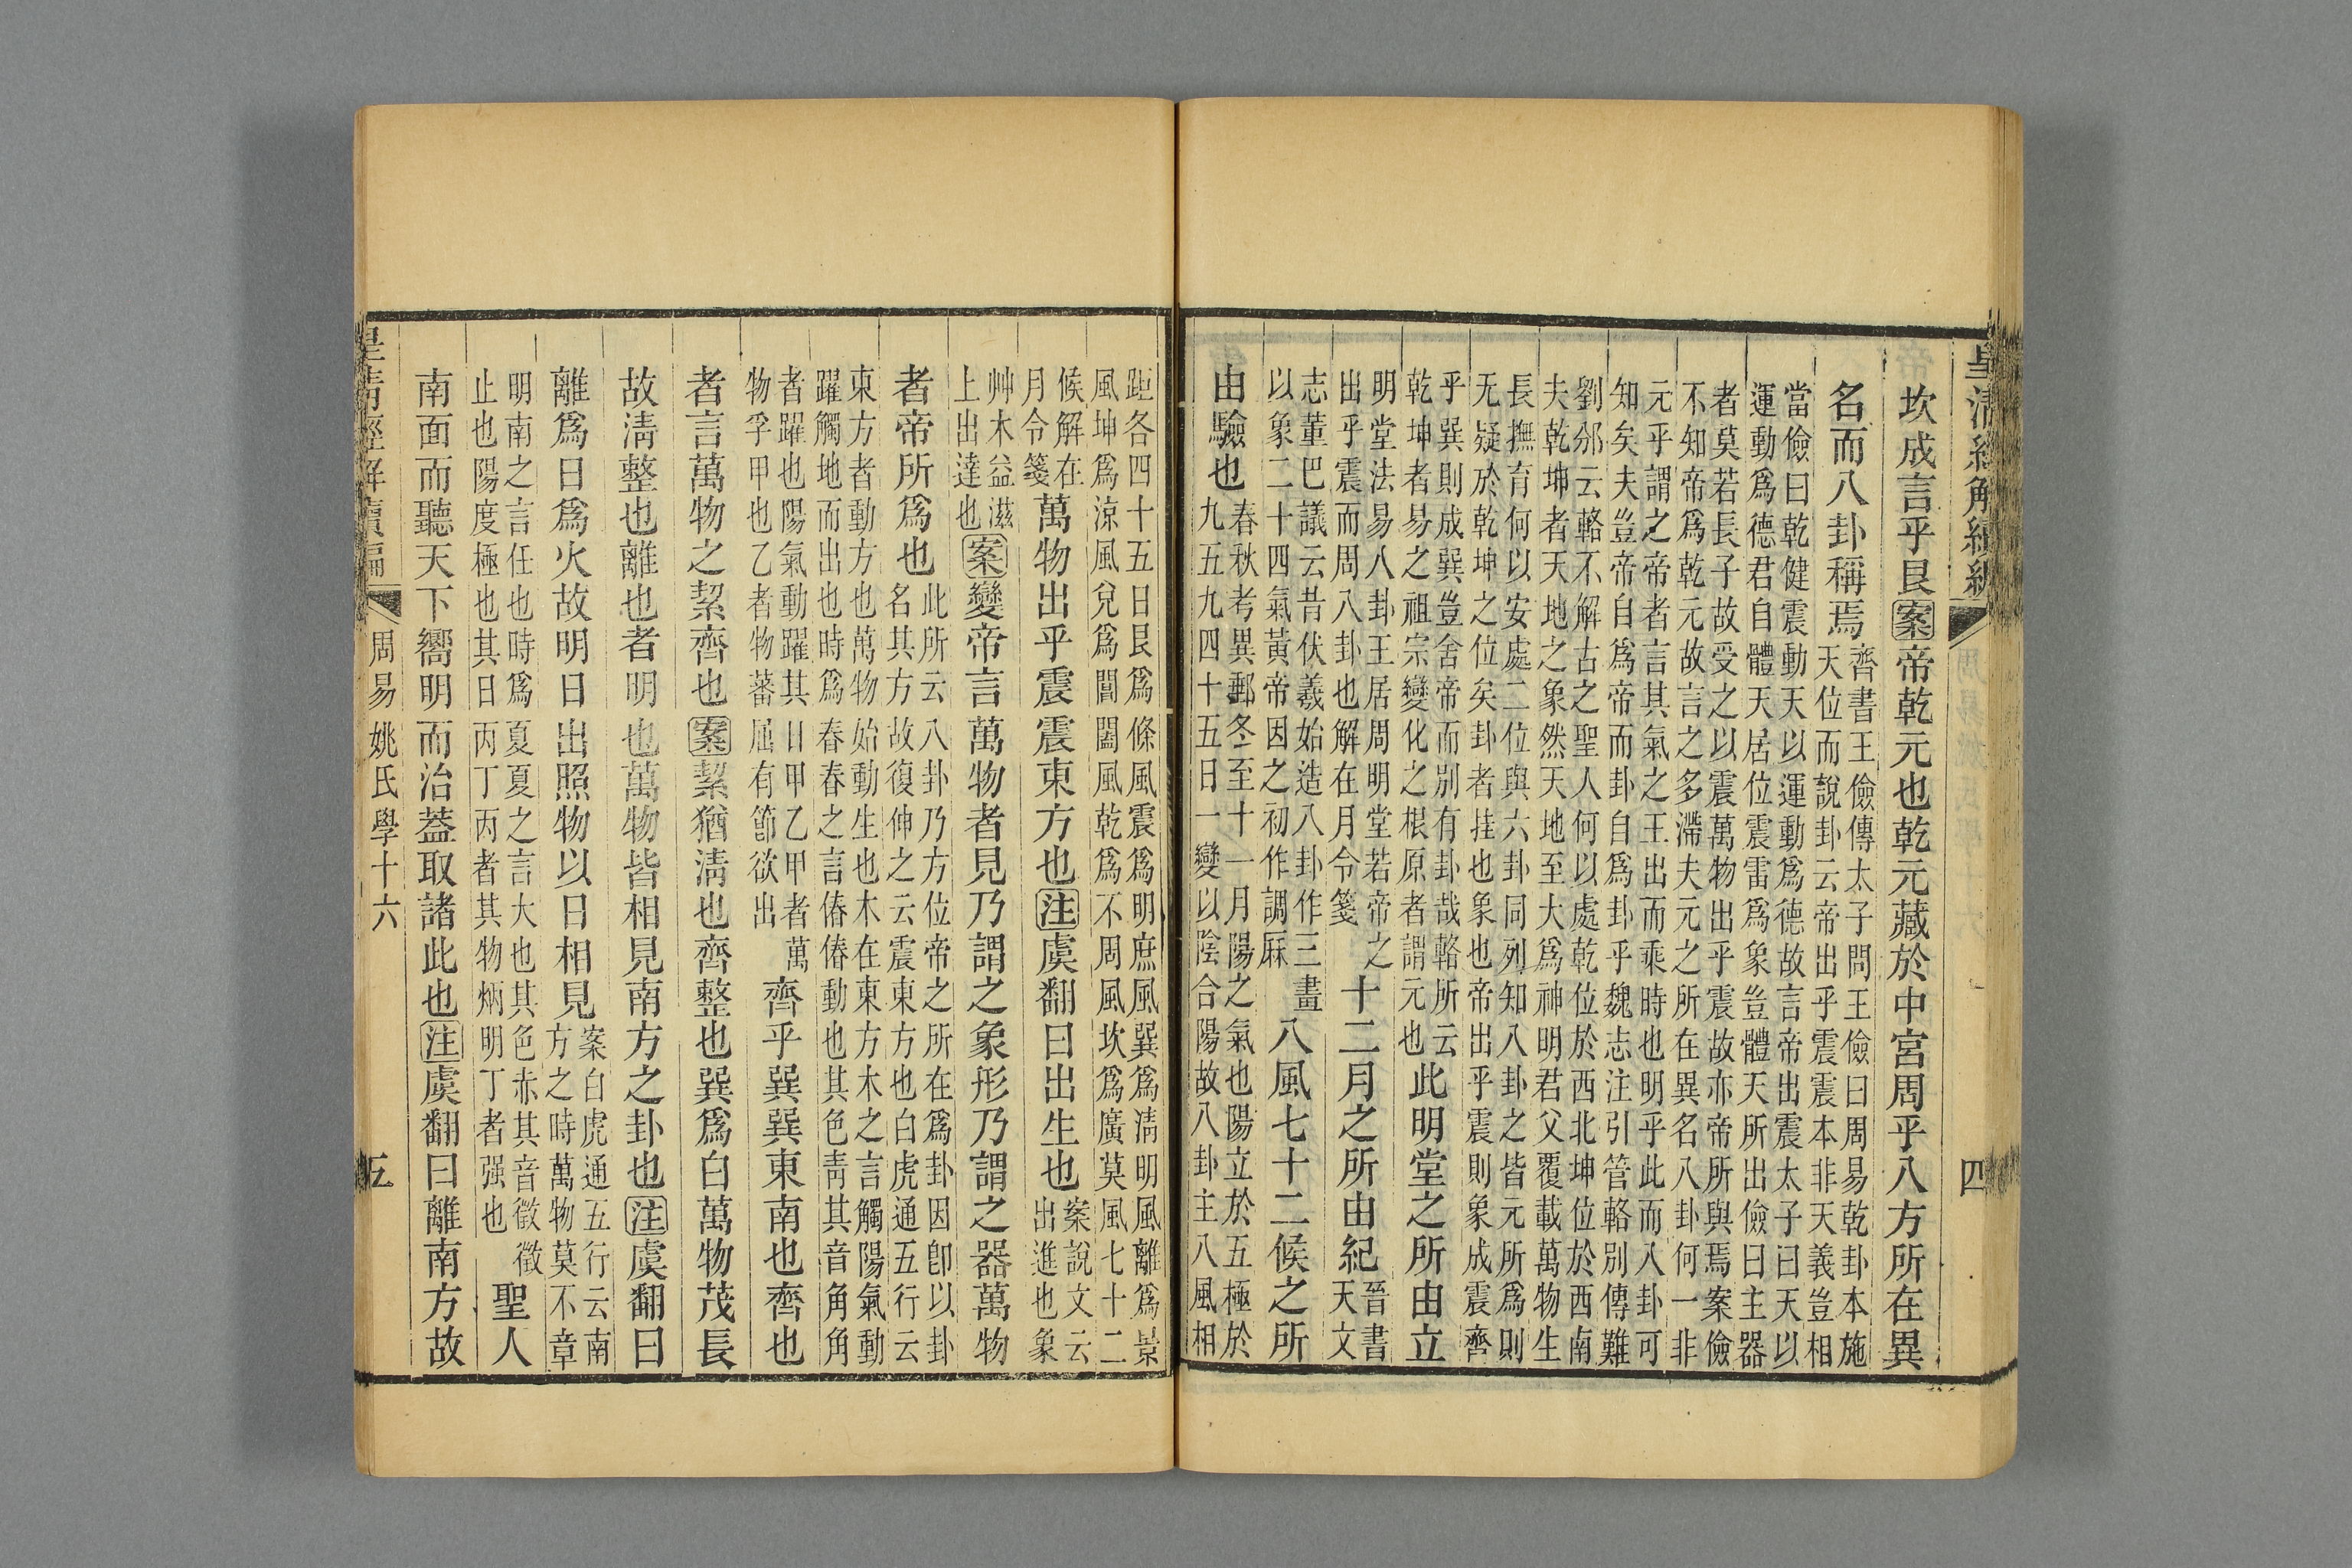 皇清經解續編
四
坎成言乎艮案帝乾元也乾元藏於中宮周乎八方所在異
名而八卦稱焉齊書王儉傳太子問王儉曰周易乾卦本施
天位而說卦云帝出乎震震本非天義豈相
當儉曰乾健震動天以運動爲德故言帝出震太子曰天以
運動爲德君自體天居位震雷爲象豈體天所出儉曰主器
者莫若長子故受之以震萬物出乎震故亦帝所與焉案儉
不知帝爲乾元故言之多滯夫元之所在異名八卦何一非
元乎謂之帝者言其氣之王出而乘時也明乎此而八卦可
知矣夫豈帝自爲帝而卦自爲卦乎魏志注引管輅別傳難
劉邠云輅不解古之聖人何以處乾位於西北坤位於西南
夫乾坤者天地之象然天地至大爲神明君父覆載萬物生
長撫育何以安處二位與六卦同列知八卦之皆元所爲則
无疑於乾坤之位矣卦者挂也象也帝出乎震則象成震齊
乎巽則成巽豈舍帝而別有卦哉輅所云
乾坤者易之祖宗變化之根原者謂元也
此明堂之所由立
明堂法易八卦王居周明堂若帝之
出乎震而周八卦也解在月令箋
十二月之所由紀晉書
天文
志董巴議云昔伏羲始造八卦作三畫
以象二十四氣黃帝因之初作調厤
八風七十二候之所
由驗也春秋考異郵冬至十一月陽之氣也陽立於五極於
九五九四十五日一變以陰合陽故八卦主八風相
距各四十五日艮爲條風震爲明庶風巽爲淸明風離爲景
風坤爲涼風兌爲閶闔風乾爲不周風坎爲廣莫風七十二
候解在
月令箋
萬物出乎震震東方也注虞翻曰出生也案說文云
出進也象
艸木益滋
上出達也
案變帝言萬物者見乃謂之象形乃謂之器萬物
者帝所爲也此所云八卦乃方位帝之所在爲卦因卽以卦
名其方故復伸之云震東方也白虎通五行云
東方者動方也萬物始動生也木在東方木之言觸陽氣動
躍觸地而出也時爲春春之言偆偆動也其色靑其音角角
者躍也陽氣動躍其日甲乙甲者萬
物孚甲也乙者物蕃屈有節欲出
齊乎巽巽東南也齊也
者言萬物之絜齊也案絜猶淸也齊整也巽爲白萬物茂長
故淸整也離也者明也萬物皆相見南方之卦也注虞翻曰
離爲日爲火故明日出照物以日相見案白虎通五行云南
方之時萬物莫不章
明南之言任也時爲夏夏之言大也其色赤其音徵徵
止也陽度極也其日丙丁丙者其物炳明丁者强也
聖人
南面而聽天下嚮明而治蓋取諸此也注虞翻曰離南方故
皇淸經解續編
周易姚氏學十六
五